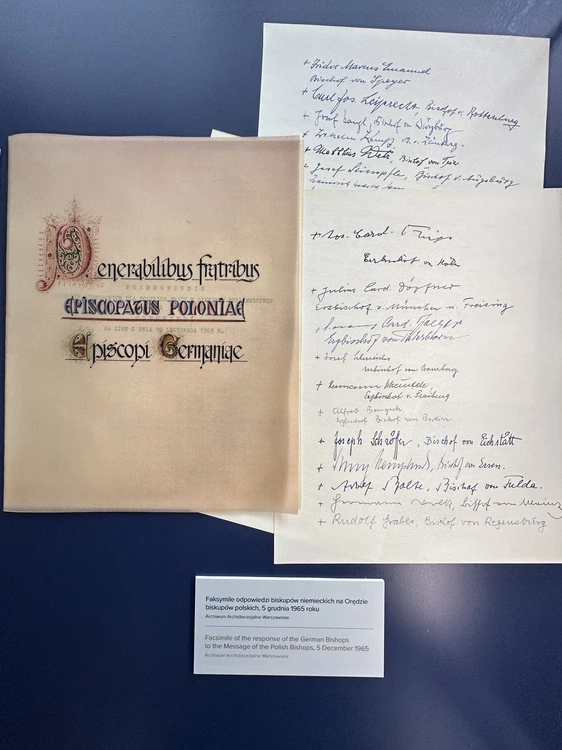 Venerabilibus fratribus
EPISCOPATUS POLONIAE
Episcopi Germaniae
NA LIST Z DNIA LISTOPADA 1965 R.
+ Isidor Marcus Emanuel
Bischof von Speyer
+ Carl Jos. Leiprecht, Bischof v. Rottenburg
+ Josef Stangl, Bischof von Würzburg
+ Wilhelm Kempf, B. v. Limburg.
+ Matthias Wehr, Bischof von Trier
+ Josef Stimpfle, Bischof v. Augsburg
+ Jos. Card. Frings
Erzbischof von Köln
+ Julius Card. Döpfner
Erzbischof von München u. Freising
Card. Jaeger
Erzbischof von Paderborn
+ Josef Schneider
Erzbischof von Bamberg
+ Hermann Schäufele,
Erzbischof v. Freiburg
+ Alfred Bengsch
Erzbischof Bischof von Berlin
+ Joseph Schröffer, Bischof von Eichstätt
+ Franz Hengsbach, Bischof von Essen.
+ Adolf Bolte, Bischof von Fulda.
+ Hermann Volk, Bischof von Mainz
+ Rudolf Graber, Bischof von Regensburg
Faksymile odpowiedzi biskupów niemieckich na Orędzie
biskupów polskich, 5 grudnia 1965 roku
Archiwum Archidiecezjalne Warszawskie
Facsimile of the response of the German Bishops
to the Message of the Polish Bishops, 5 December 1965
Archiwum Archidiecezjalne Warszawskie